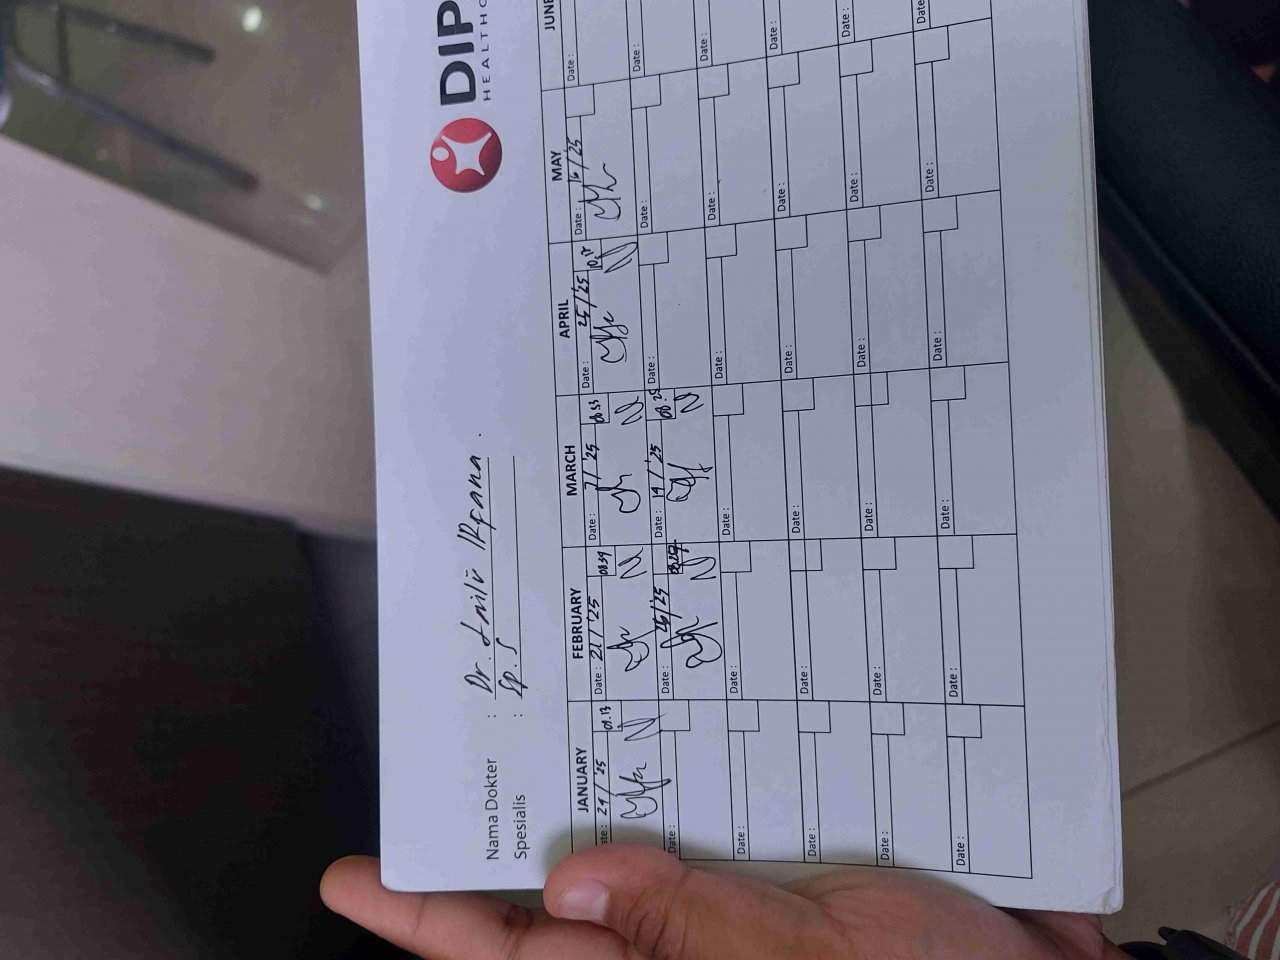 DIP
HEALTHC
Nama Dokter : Dr. Laili Irfana .
Spesialis : Sp. S
JANUARY FEBRUARY MARCH APRIL MAY JUNE
Date : 21/'25 08.39 Date : 7/'25 08.53 Date : 25/'25 Date : 16/'25 Date :
Date : Date : 26/'25 Date : 14/'25 08.25 Date : Date : Date :
Date : Date : Date : Date : Date : Date :
Date : Date : Date : Date : Date : Date :
Date : Date : Date : Date : Date : Date :
Date : Date : Date : Date : Date : Date